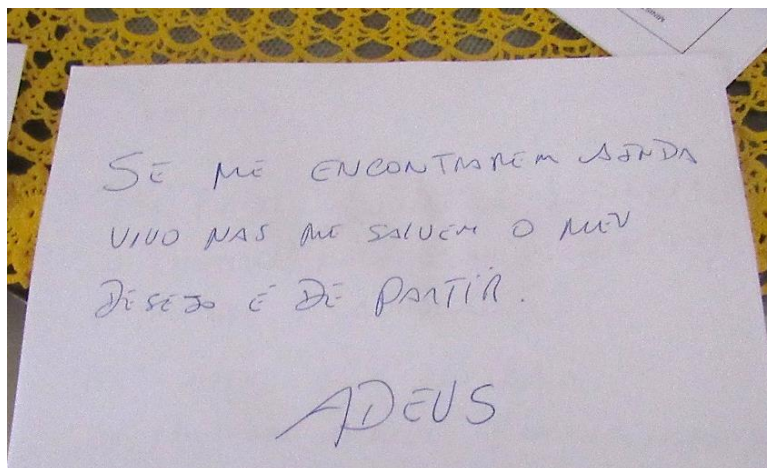 SE ME ENCONTRAREM AINDA
VIVO NAS ME SALVEM O MEU
DESEJO É DE PARTIR.
ADEUS